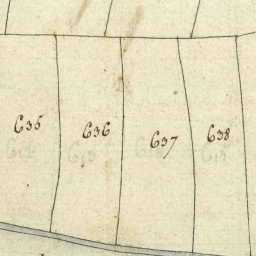 635 636 637 638